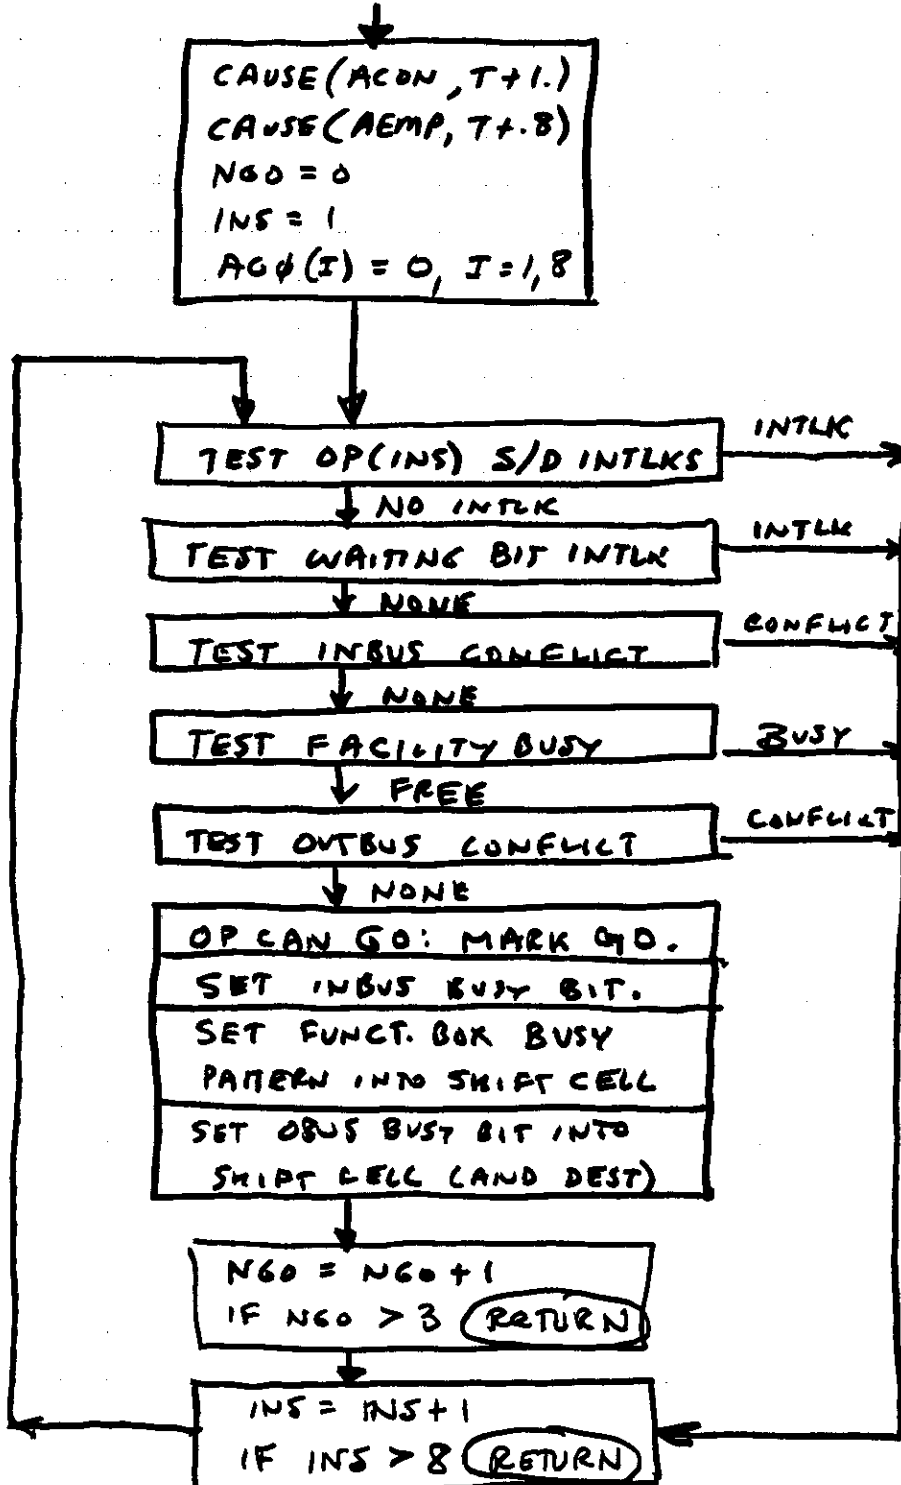 CAUSE(ACON, T+1.)
CAUSE(AEMP, T+.8)
NGO = 0
INS = 1
AGO(I) = 0, I=1,8
TEST OP(INS) S/D INTLKS
INTLK
NO INTLK
TEST WAITING BIT INTLK
INTLK
NONE
TEST INBUS CONFLICT
CONFLICT
NONE
TEST FACILITY BUSY
BUSY
FREE
TEST OUTBUS CONFLICT
CONFLICT
NONE
OP CAN GO: MARK GO.
SET INBUS BUSY BIT.
SET FUNCT. BOX BUSY
PATTERN INTO SHIFT CELL
SET OBUS BUSY BIT INTO
SHIFT CELL (AND DEST)
NGO = NGO + 1
IF NGO > 3 RETURN
INS = INS + 1
IF INS > 8 RETURN